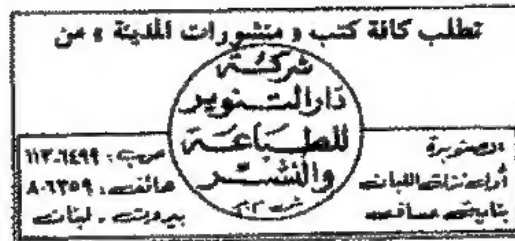 تطلب كافة كتب « منشورات المدينة » من
شركة
دار التنوير
للطباعة
والنشر
ش.م.م
الصنوبرة
أول نزلة اللبان
بناية عساف
ص.ب: ١١٣-٦٤٩٩
هاتف: ٨٠٦٣٥٩
بيروت - لبنان